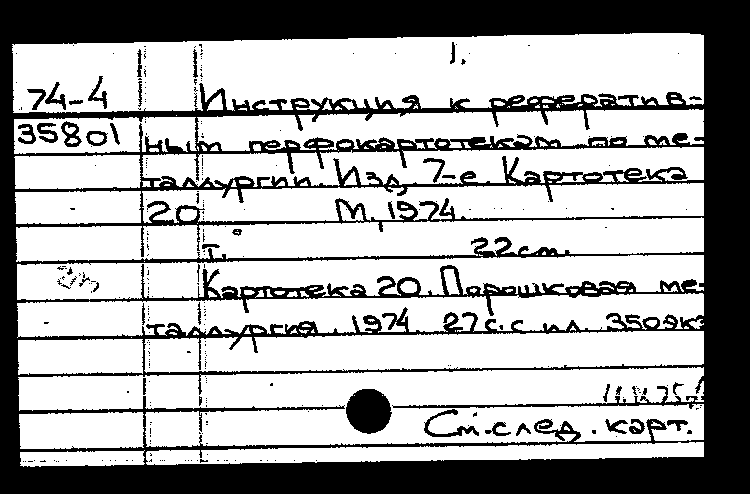 1.
74-4 Инструкция к рефератив-
35801 ным перфокартотекам по ме-
таллургии. Изд. 7-е. Картотека
20 М., 1974.
т. 22см.
Картотека 20. Порошковая ме-
таллургия. 1974 27с. с ил. 350экз
См. след. карт.